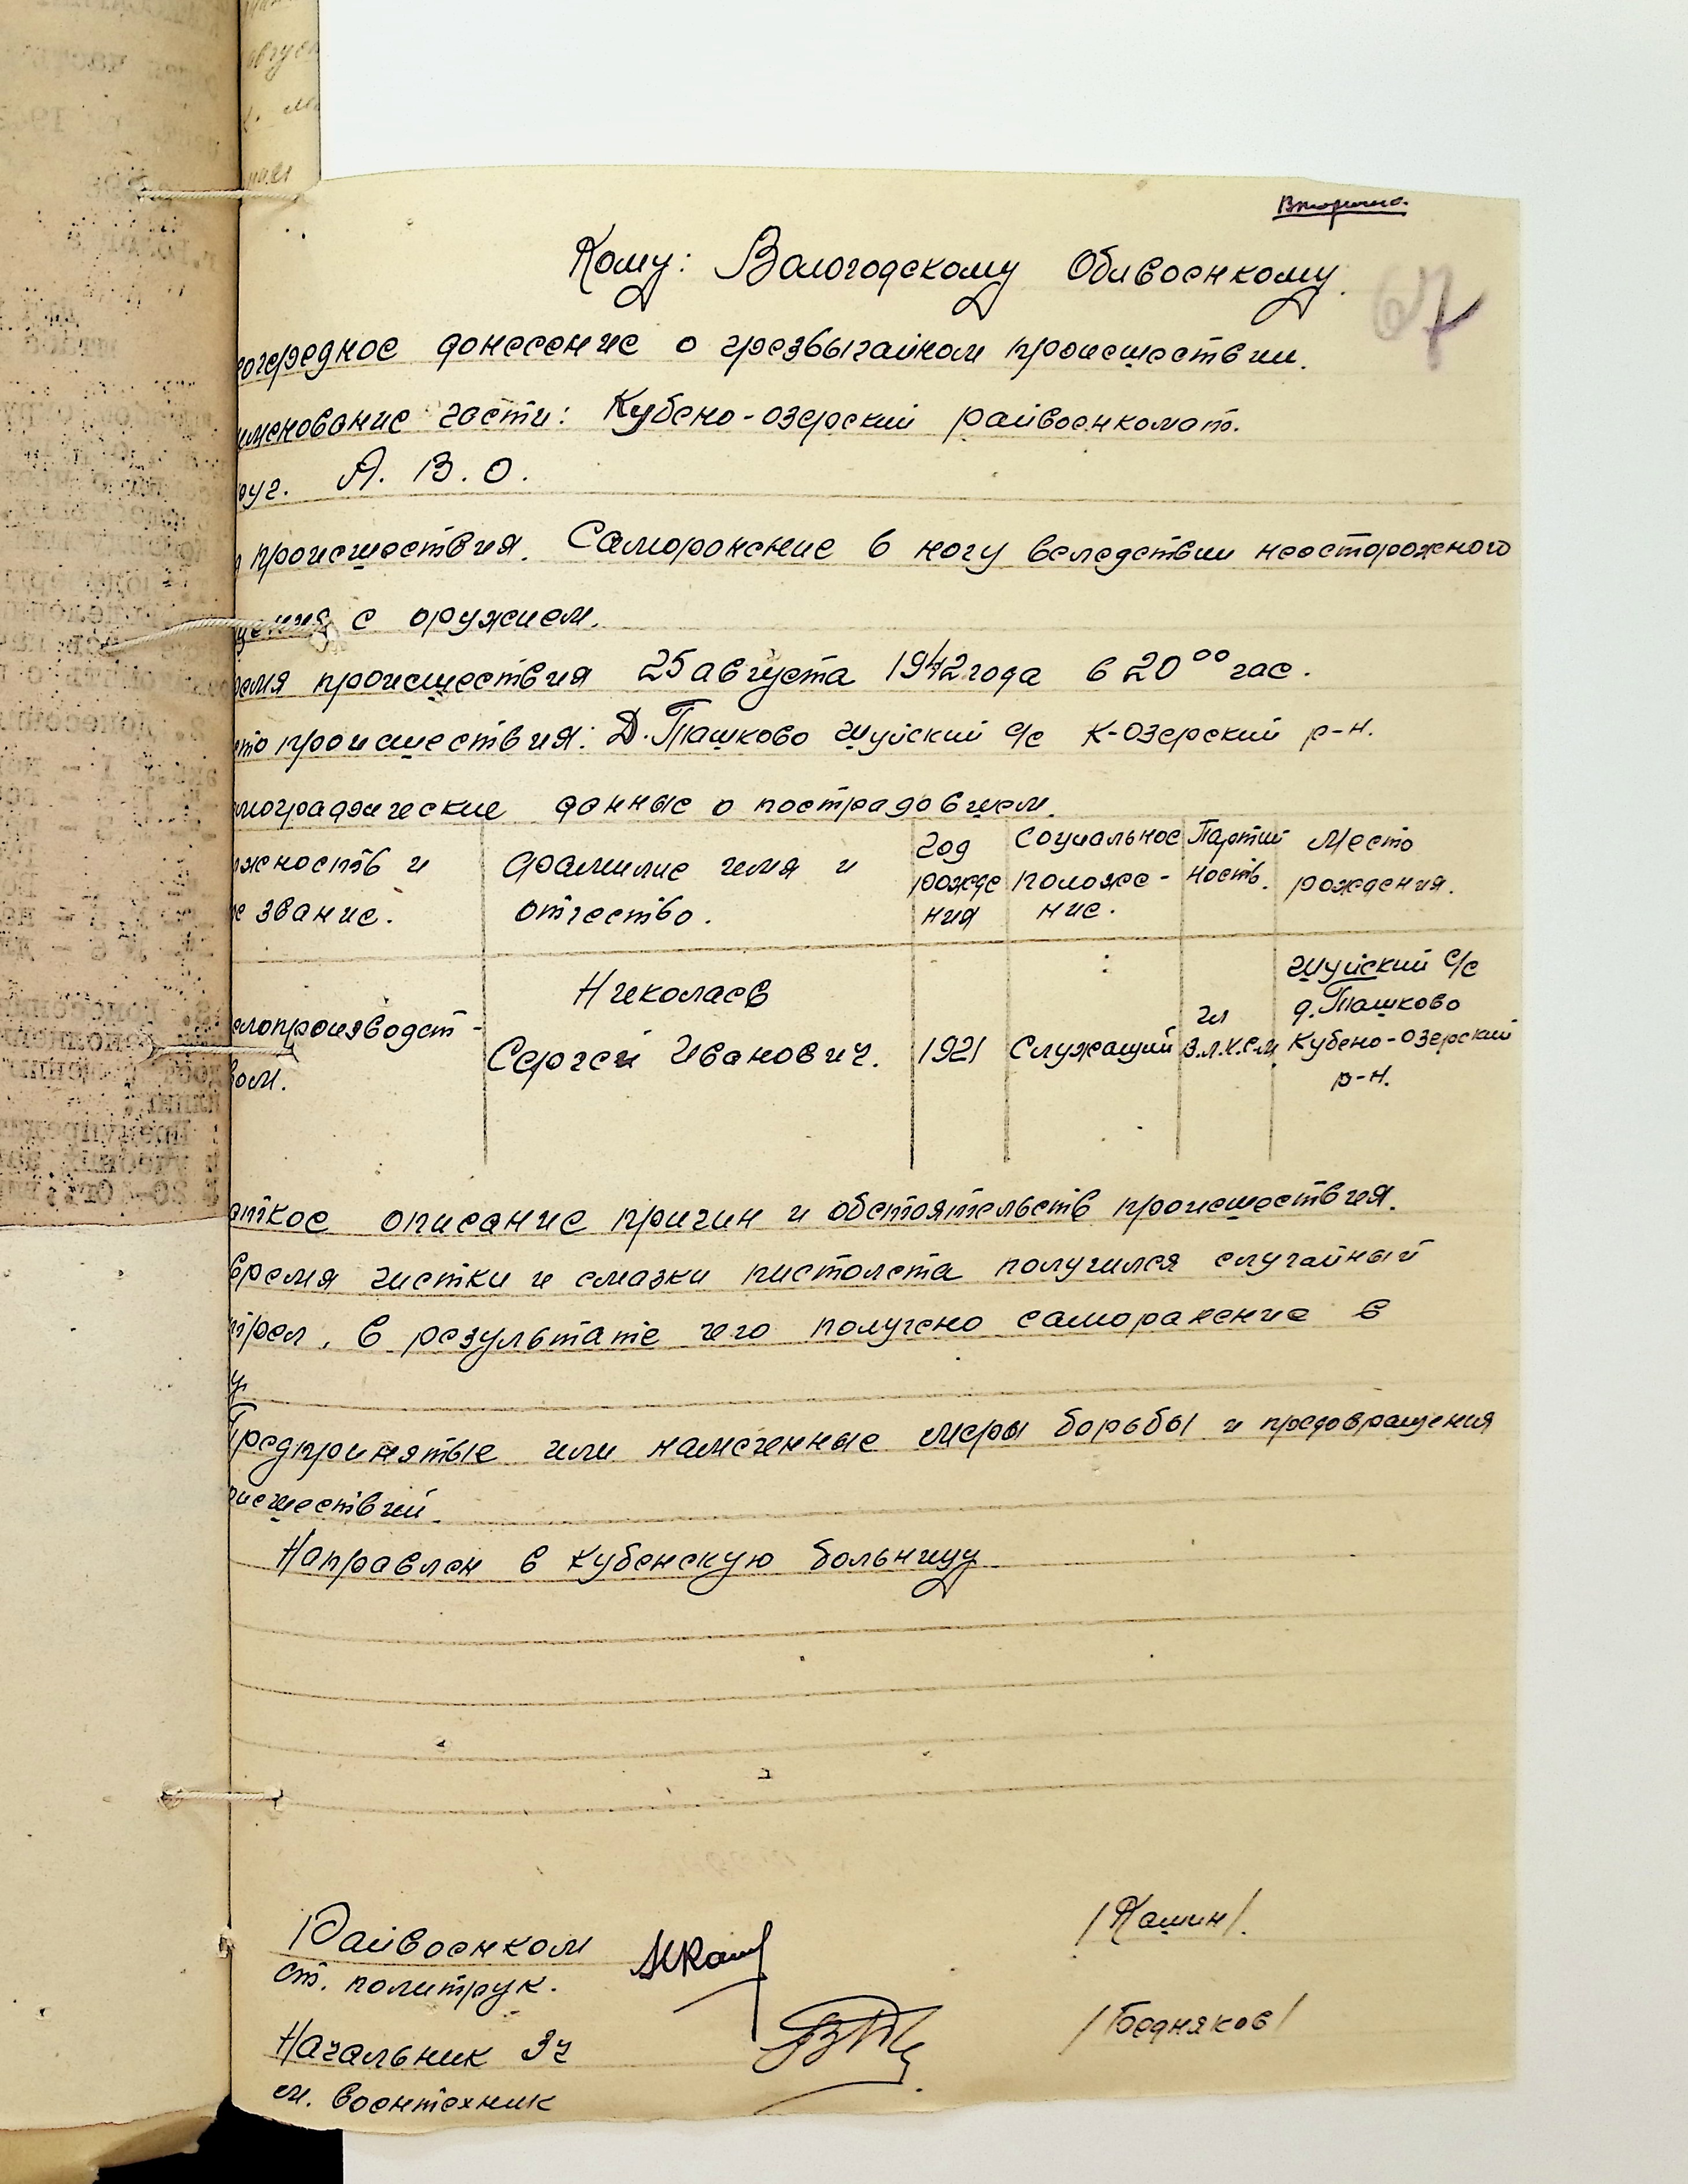 Вторично.
67
Кому: Вологодскому Облвоенкому.
еочередное донесение о чрезвычайном происшествии.
именование части: Кубено-озерский райвоенкомат.
руг. А. В. О.
происшествия. Саморонение в ногу вследствии неосторожного
щения с оружием.
ремя происшествия 25 августа 1942 года в 20⁰⁰ час.
сто происшествия: Д. Пашково Шуйский с/с К-Озерский р-н.
мографические данные о пострадовшем.
лжность и
е звание.
Фамилие имя и
отчество.
Год
рожде
ния
Социальное
положе-
ние.
Партий
ность.
Место
рождения.
елопроизводст-
вом.
Николаев
Сергей Иванович.
1921
Служащий
чл
В.Л.К.С.М.
Шуйский с/с
д. Пашково
Кубено-Озерский
р-н.
аткое описание причин и обстоятельств происшествия.
время чистки и смазки пистолета получился случайный
трел, в результате чего получено саморанение в
у.
Предпринятые или намеченные меры борьбы и предовращения
оисшествий.
Направлен в Кубенскую больницу
Райвоенком
ст. политрук.
/Кашин/.
Начальник 3ч
мл. воентехник
/Бедняков/